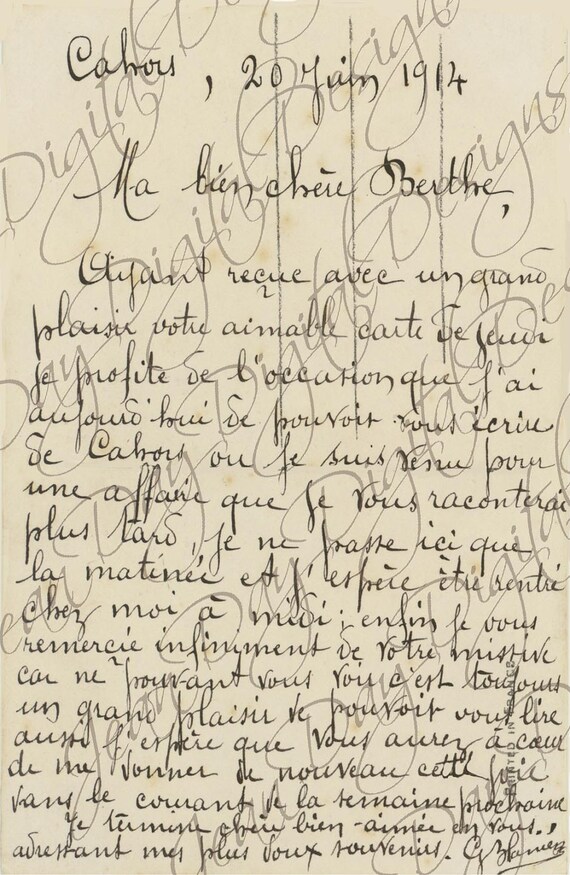 Cahors, 20 Juin 1914
Ma bien chère Berthe,
Ayant reçue avec un grand
plaisir votre aimable carte de Jeudi
je profite de l'occasion que j'ai
aujourd'hui de pouvoir vous écrire
de Cahors ou je suis venu pour
une affaire que je vous raconterai
plus tard, je ne passe ici que
la matinée et j'espère être rentré
chez moi à midi; enfin je vous
remercie infiniment de votre missive
car ne pouvant vous voir c'est toujours
un grand plaisir de pouvoir vous lire
aussi j'espère que vous aurez à cœur
de me donner de nouveau cette joie
dans le courant de la semaine prochaine
Je termine chère bien-aimée en vous
adressant mes plus doux souvenirs.
PRINTED IN
Digital Day Designs